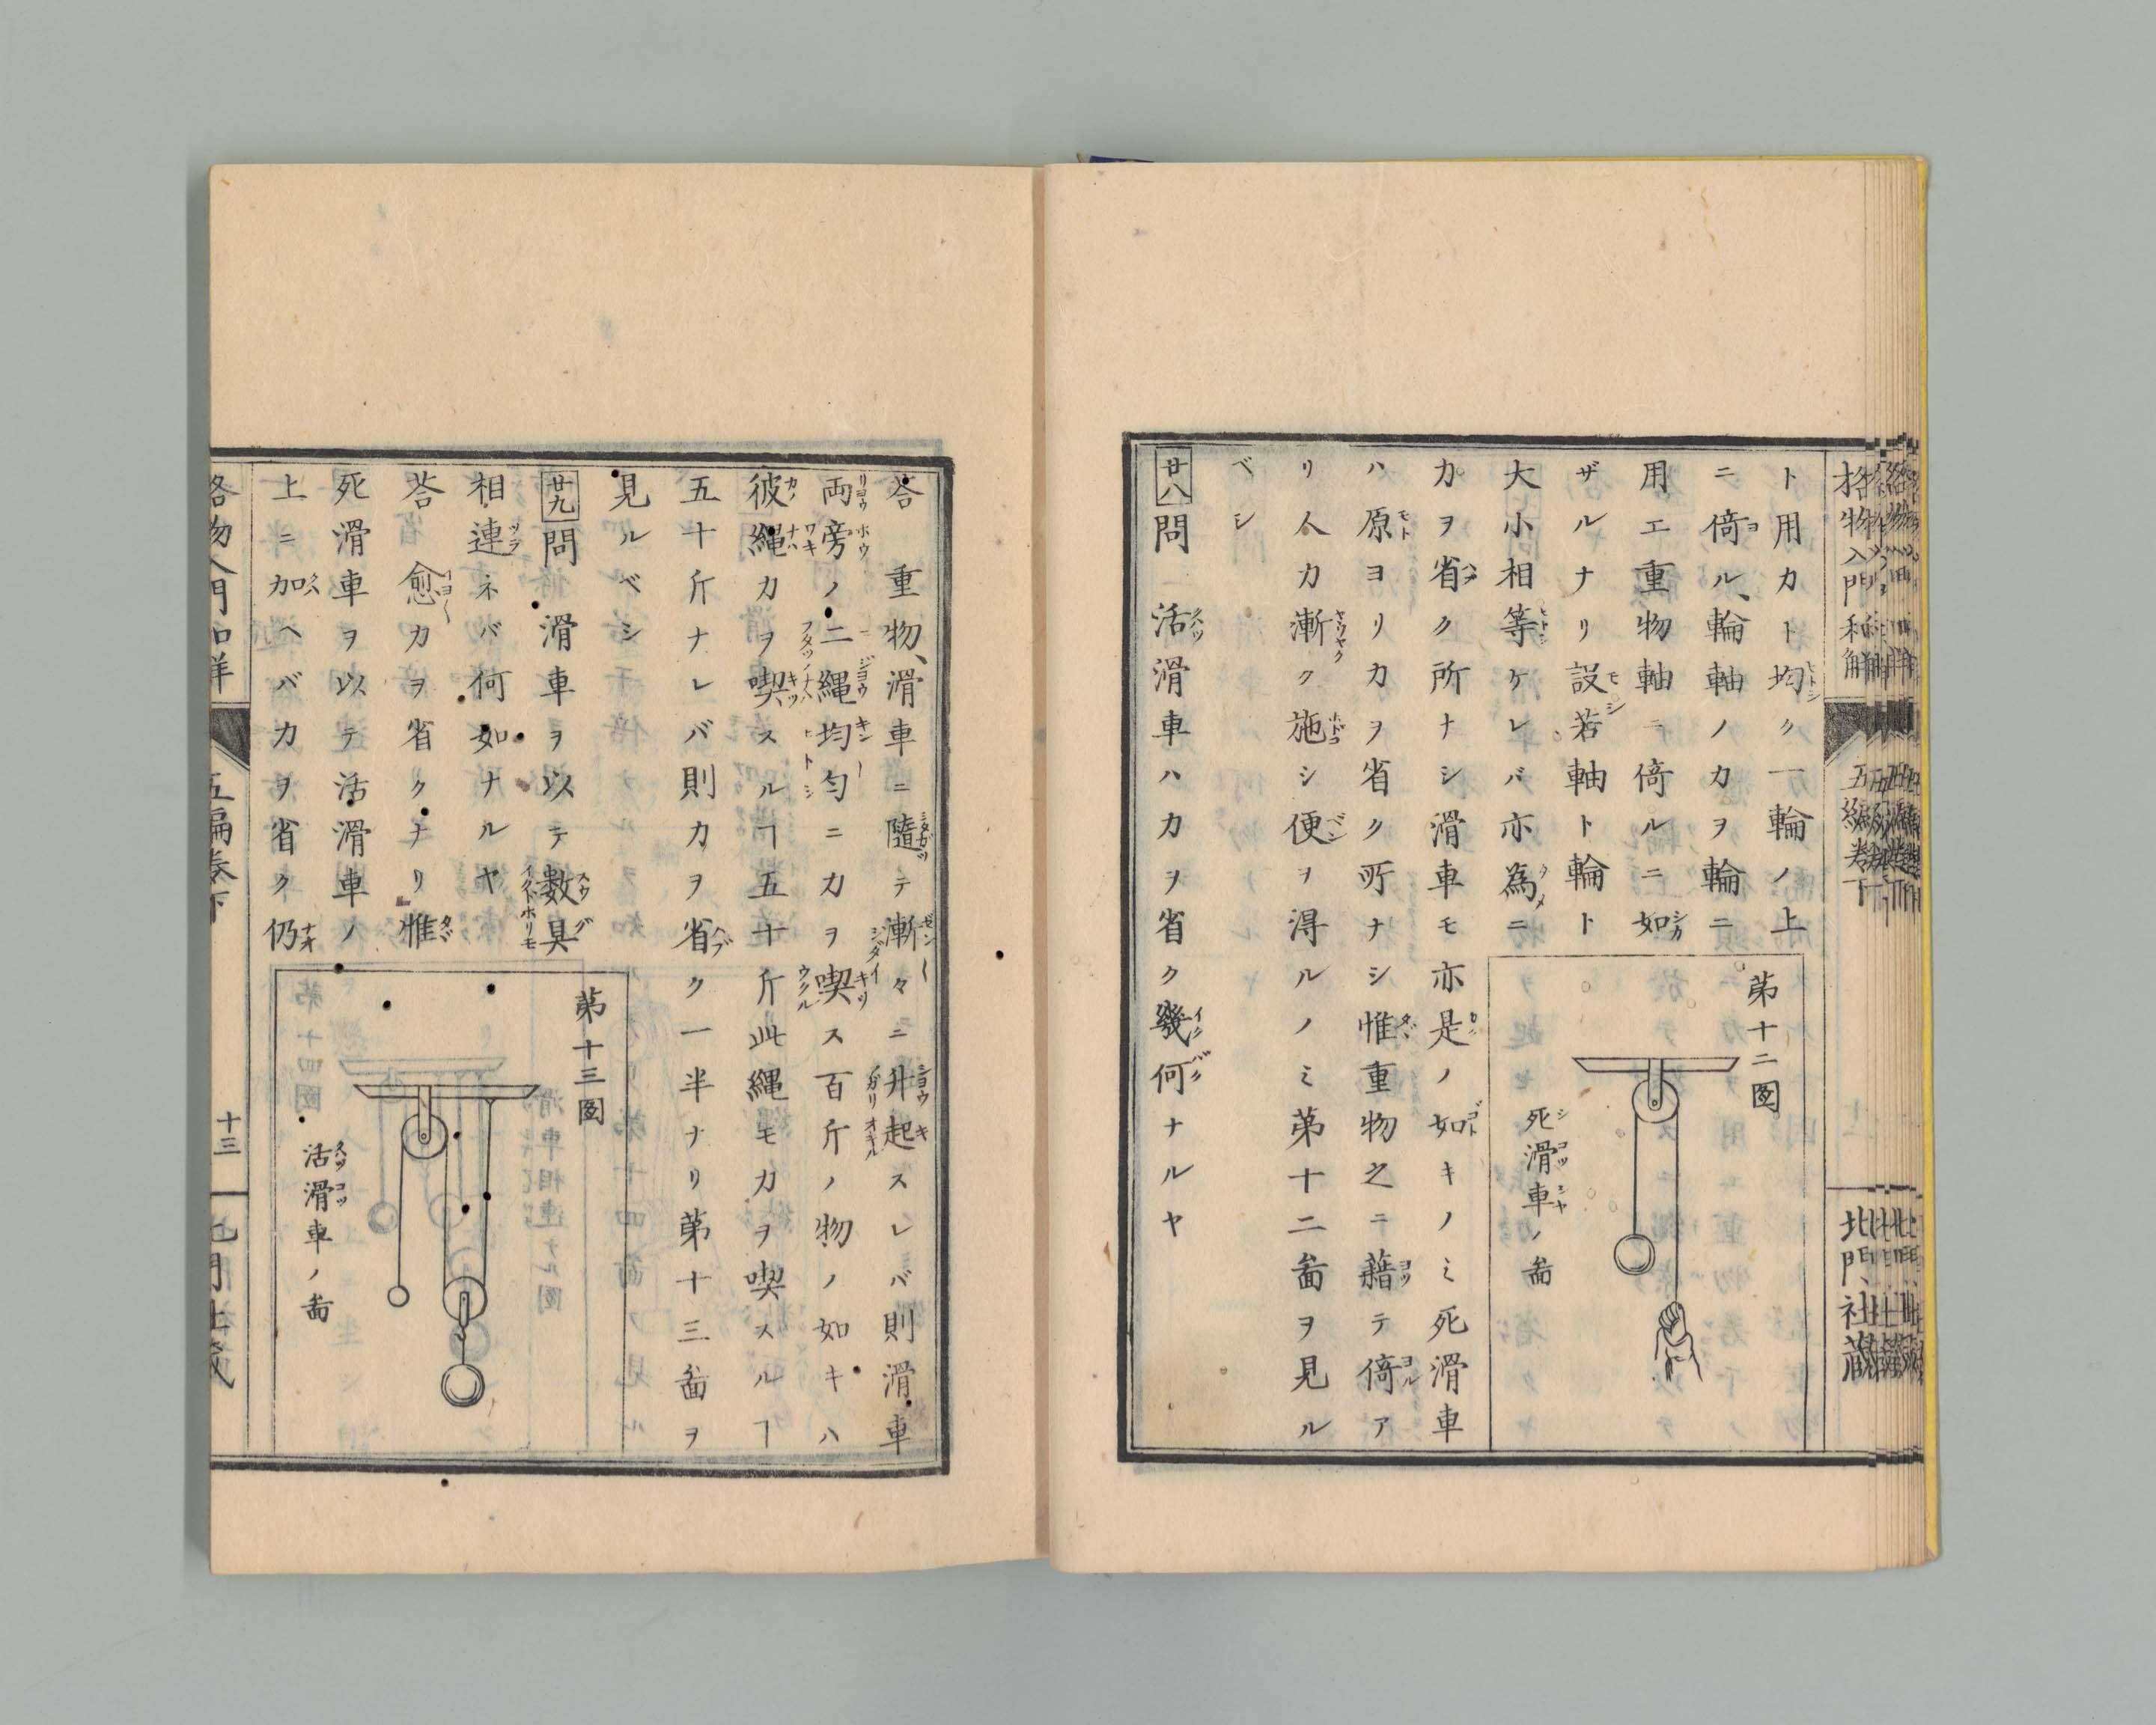 格物入門和解
五編巻下
北門社蔵
ト用力ト均ク一輪ノ上
ニ倚ル、輪軸ノ力ヲ輪ニ
用エ重物軸ニ倚ルニ如
ザルナリ設若軸ト輪ト
大小相等ケレバ亦為ニ
力ヲ省ク所ナシ滑車モ亦是ノ如キノミ死滑車
ハ原ヨリ力ヲ省ク所ナシ惟重物之ニ藉テ倚ア
リ人力漸ク施シ便ヲ得ルノミ第十二啚ヲ見ル
ベシ
第十二図
死滑車ノ啚
廿八問 活滑車ハ力ヲ省ク幾何ナルヤ
荅 重物、滑車ニ隨テ漸々ニ升起スレバ則滑車
両旁ノ二縄均匀ニ力ヲ喫ス百斤ノ物ノ如キハ
彼縄力ヲ喫スルヿ五十斤此縄モ力ヲ喫スルヿ
五十斤ナレバ則力ヲ省ク一半ナリ第十三啚ヲ
見ルベシ
廿九問 滑車ヲ以テ数具
相連ネバ何如ナルヤ
荅 愈力ヲ省クナリ惟
死滑車ヲ以テ活滑車ノ
上ニ加ヘバ力ヲ省ク仍
第十三図
活滑車ノ啚
格物入門和解
五編巻下
十三
北門社蔵